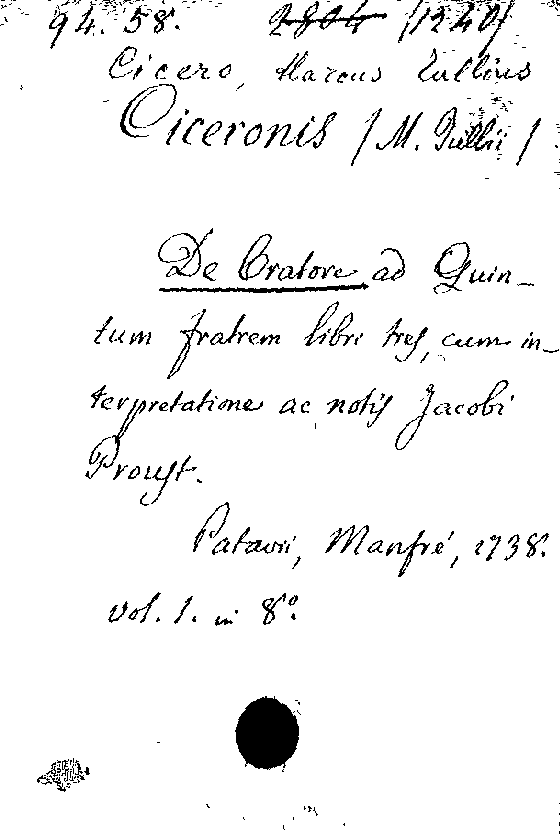 94. 58. 2804 (1240)
Cicero, Marcus Tullius
Ciceronis (M. Tullii)
De Oratore ad Quin-
tum fratrem libri tres, cum in-
terpretatione ac notis Jacobi
Proust.
Patavii, Manfré, 1738.
vol. 1. in 8º.